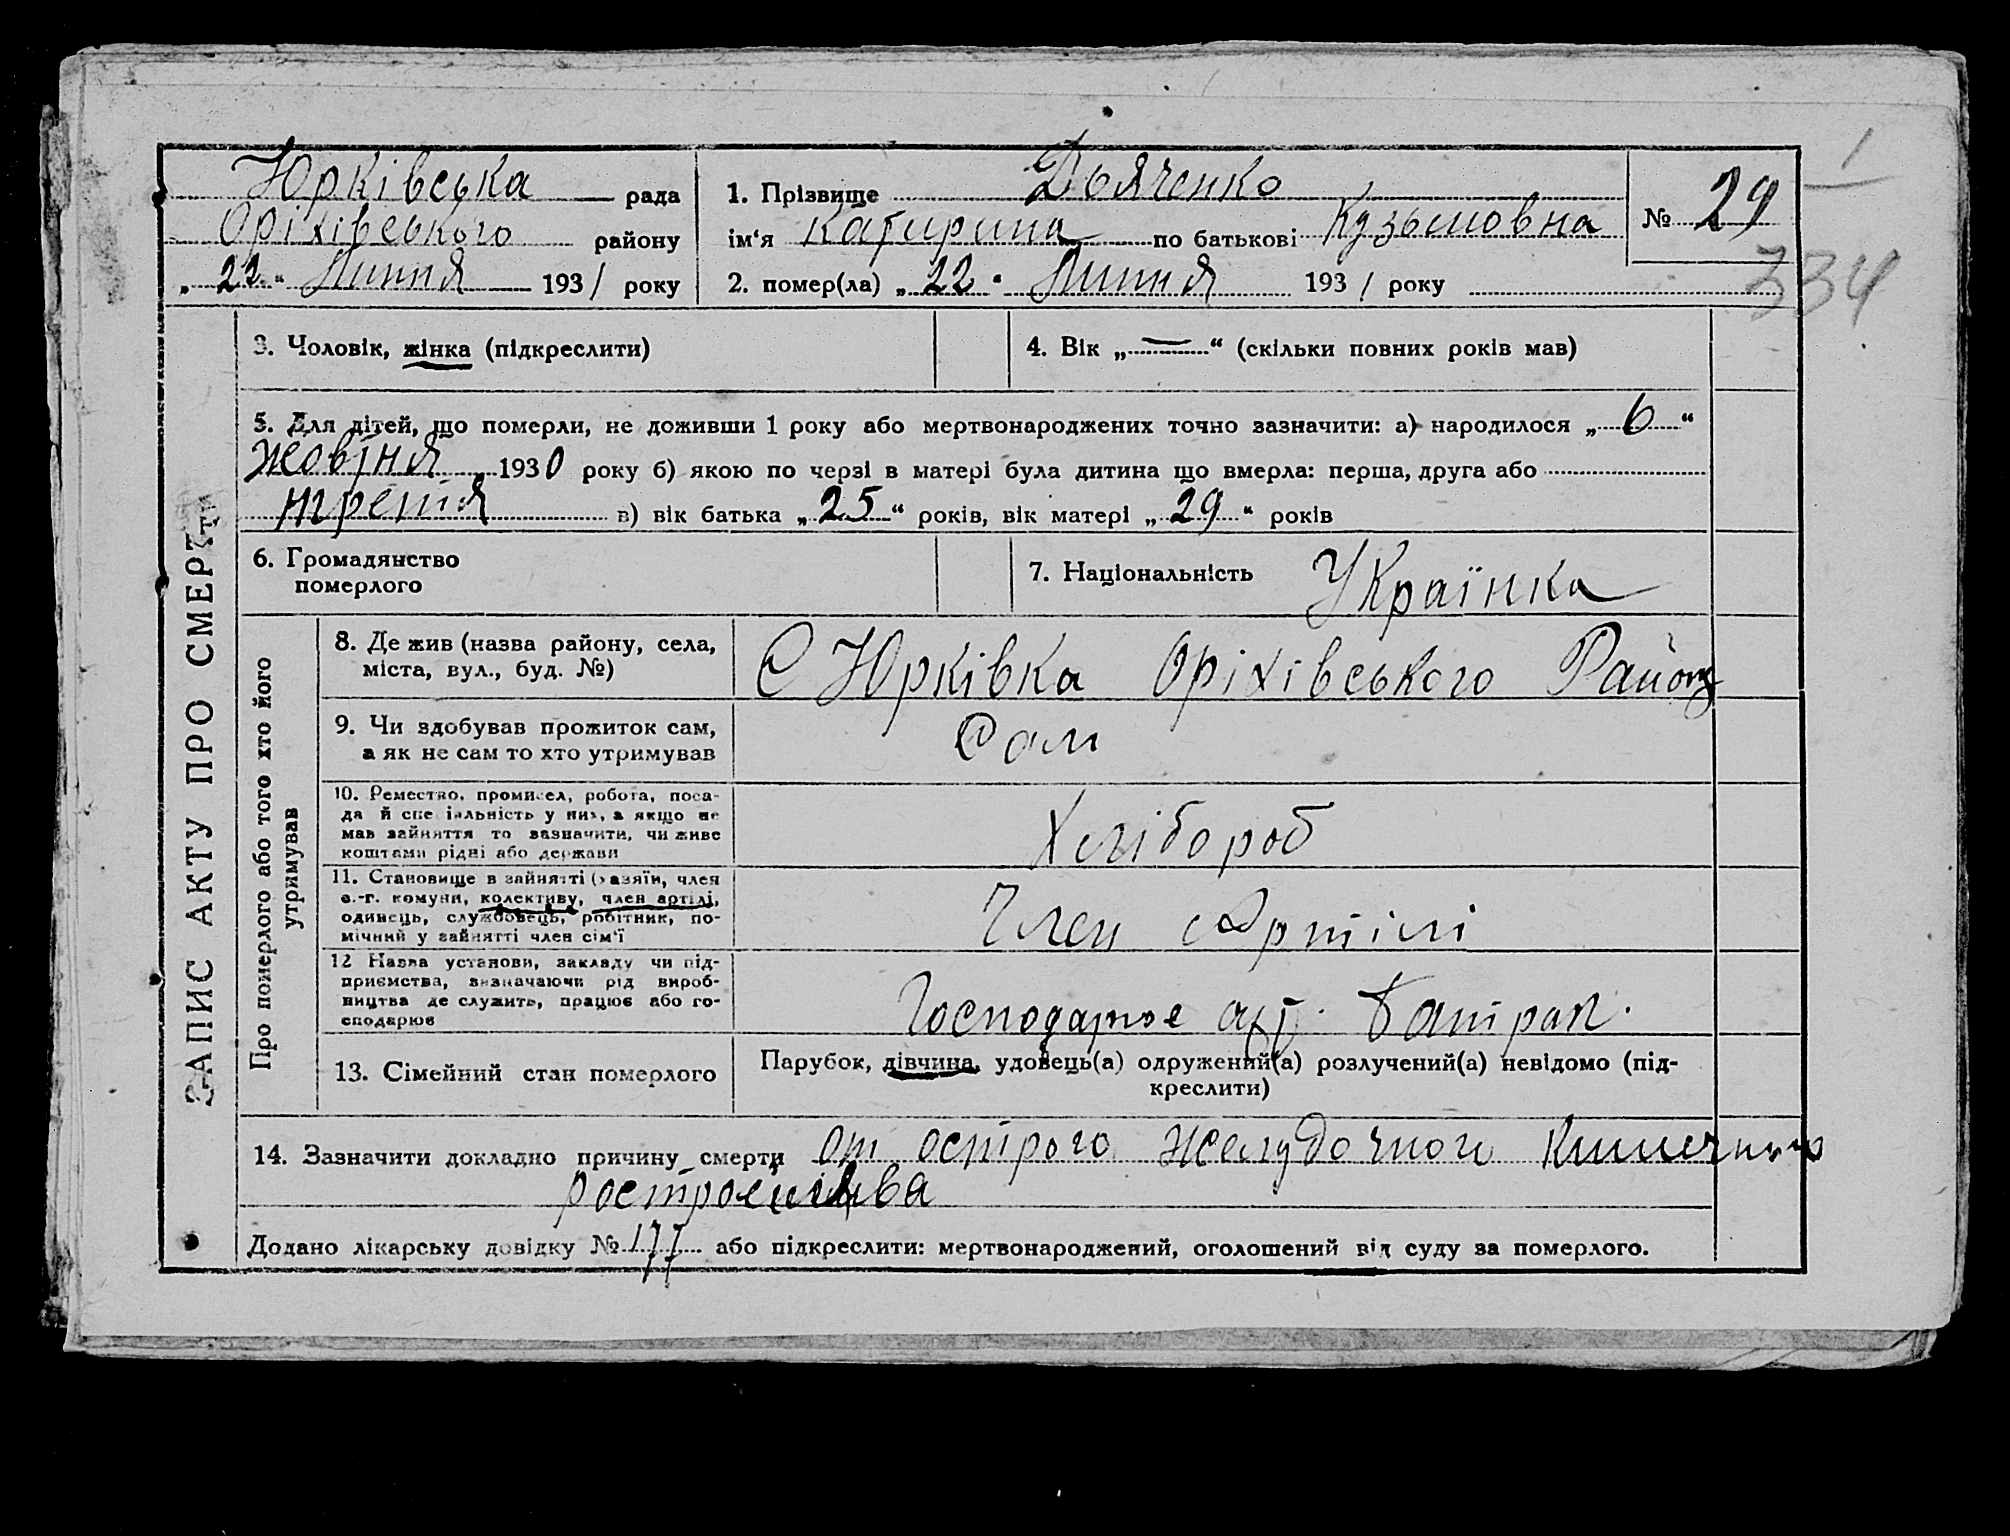 Юрківська рада
Оріхівського району
„ 22 “ Липня 1931 року
1. Прізвище Дьяченко
ім‘я Катирина по батькові Кузьмовна
2. помер(ла) „ 22 “ Липня 1931 року
№ 29
334
ЗАПИС АКТУ ПРО СМЕРТЬ
3. Чоловік, жінка (підкреслити)
4. Вік „ — “ (скільки повних років мав)
5. Для дітей, що померли, не доживши 1 року або мертвонароджених точно зазначити: а) народилося „ 6 “
жовтня 1930 року б) якою по черзі в матері була дитина що вмерла: перша, друга або
третія в) вік батька „ 25 “ років, вік матері „ 29 “ років
6. Громадянство
померлого
7. Національність Українка
Про померлого або того хто його
утримував
8. Де жив (назва району, села,
міста, вул., буд. №)
С Юрківка Оріхівського Району
9. Чи здобував прожиток сам,
а як не сам то хто утримував
Сам
10. Ремество, промисел, робота, поса-
да й спеціяльність у них, а якщо не
мав зайняття то зазначити, чи живе
коштами рідні або держави
Хлібороб
11. Становище в зайнятті (хазяїн, член
с.-г. комуни, колективу, член артілі,
одинець, службовець, робітник, по-
мічний у зайнятті член сім‘ї
Член Артілі
12 Назва установи, закладу чи під-
приємства, визначаючи рід вироб-
ництва де служить, працює або го-
сподарює
Господарює арт. Батрак.
13. Сімейний стан померлого
Парубок, дівчина, удовець(а) одружений(а) розлучений(а) невідомо (під-
креслити)
14. Зазначити докладно причину смерти от острого желудочного кишечного
Додано лікарську довідку № 177 або підкреслити: мертвонароджений, оголошений від суду за померлого.